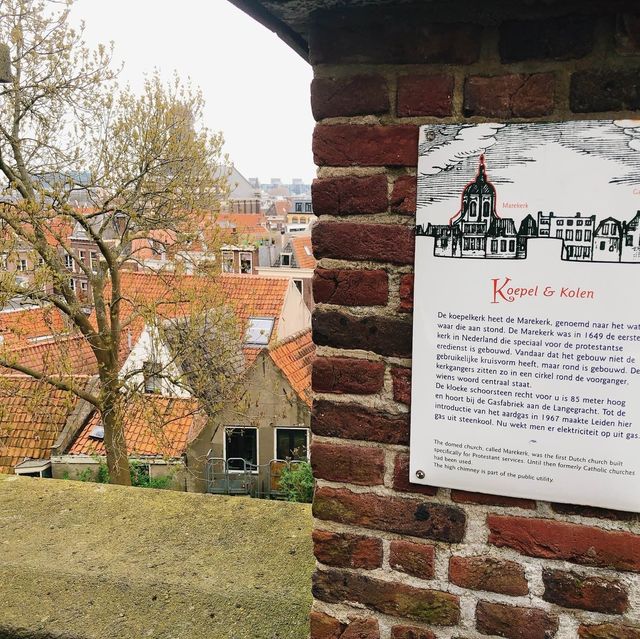 Marekerk
Koepel & Kolen
De koepelkerk heet de Marekerk, genoemd naar het
waar die aan stond. De Marekerk was in 1649 de eerste
kerk in Nederland die speciaal voor de protestantse
eredienst is gebouwd. Vandaar dat het gebouw niet de
gebruikelijke kruisvorm heeft, maar rond is gebouwd. De
kerkgangers zitten zo in een cirkel rond de voorganger,
wiens woord centraal staat.
De kloeke schoorsteen recht voor u is 85 meter hoog
en hoort bij de Gasfabriek aan de Langegracht. Tot de
introductie van het aardgas in 1967 maakte Leiden hier
gas uit steenkool. Nu wekt men er elektriciteit op uit gas.
The domed church, called Marekerk, was the first Dutch church built
specifically for Protestant services. Until then formerly Catholic churches
had been used.
The high chimney is part of the public utility.